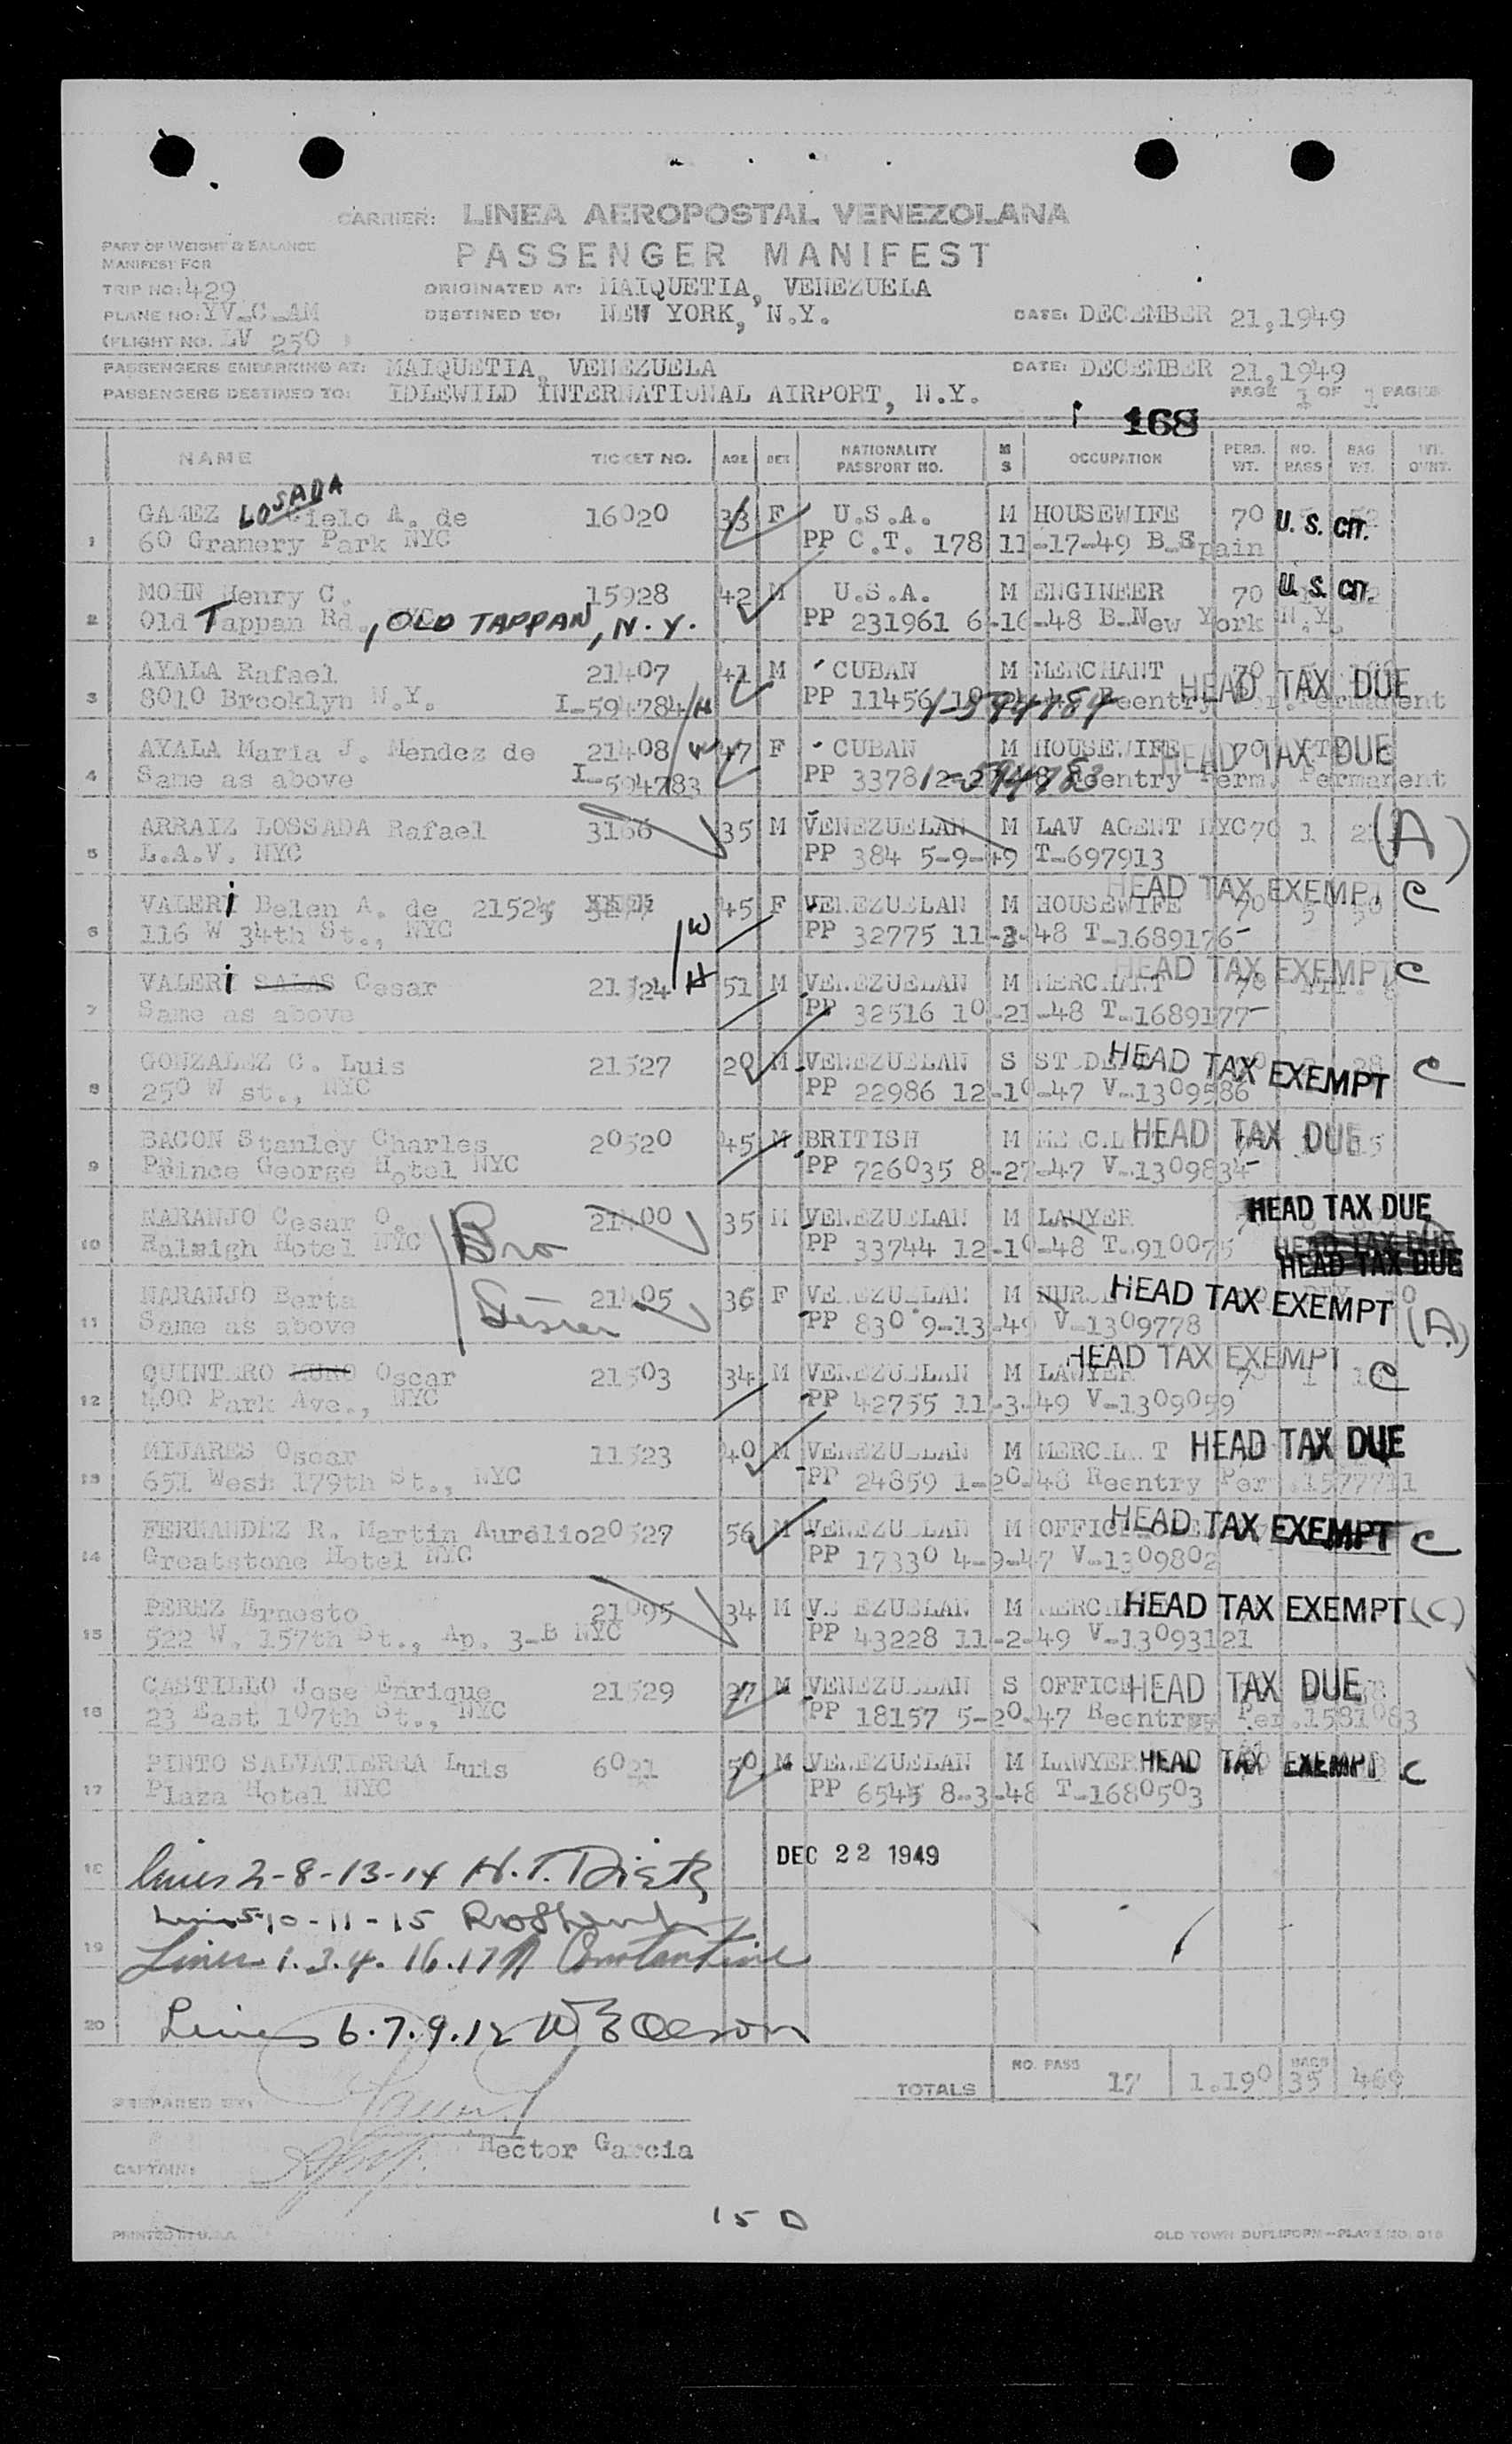 CARRIER: LINEA AEROPOSTAL VENEZOLANA
PART OF WEIGHT & BALANCE
MANIFEST FOR
PASSENGER MANIFEST
TRIP NO: 429
ORIGINATED AT: MAIQUETIA, VENEZUELA
PLANE NO: YV-C-AM
DESTINED TO: NEW YORK, N.Y.
DATE: DECEMBER 21,1949
(FLIGHT NO. LV 250 )
PASSENGERS EMBARKING AT: MAIQUETIA, VENEZUELA
DATE: DECEMBER 21,1949
PASSENGERS DESTINED TO: IDLEWILD INTERNATIONAL AIRPORT, N.Y.
PAGE 1 OF 1 PAGES
168
NAME TICKET NO. AGE SEX NATIONALITY PASSPORT NO. M S OCCUPATION PERS. WT. NO. BAGS BAG WT.
LOSADA
GAMEZ Cielo A. de 16020 33 F U.S.A. M HOUSEWIFE 70 U.S. CIT.
1 60 Gramery Park NYC PP C.T. 178 11-17-49 B-Spain
MOHN Henry C. 15928 42 M U.S.A. M ENGINEER 70 U.S. CIT.
2 Old Tappan Rd., OLD TAPPAN, N.Y. PP 231961 6-16-48 B-New York N.Y.
AYALA Rafael 21407 41 M CUBAN M MERCHANT 70 HEAD TAX DUE
3 8010 Brooklyn N.Y. I-594784/H PP 11456 Reentry Permanent
1-594784
AYALA Maria J. Mendez de 21408 W 47 F CUBAN M HOUSEWIFE 70 HEAD TAX DUE
4 Same as above I-594783 PP 3378 Reentry Perm. Permanent
ARRAIZ LOSSADA Rafael 3166 35 M VENEZUELAN M LAV AGENT NYC 70 1 (A)
5 L.A.V. NYC PP 384 5-9-49 T-697913
VALERi Belen A. de 21525 45 F VENEZUELAN M HOUSEWIFE 70 5 50 HEAD TAX EXEMPT C
6 116 W 34th St., NYC W PP 32775 11-3-48 T-1689176-
VALERi SALAS Cesar 21524 H 51 M VENEZUELAN M MERCHANT 70 HEAD TAX EXEMPT C
7 Same as above PP 32516 10-21-48 T-1689177-
GONZALEZ C. Luis 21527 20 M VENEZUELAN S STUDENT HEAD TAX EXEMPT C
8 250 W st., NYC PP 22986 12-10-47 V-1309586
BACON Stanley Charles 20520 45 M BRITISH M HEAD TAX DUE 15
9 Prince George Hotel NYC PP 726035 8-27-47 V-1309834-
NARANJO Cesar O. 21400 35 M VENEZUELAN M LAWYER HEAD TAX DUE
10 Raleigh Hotel NYC Bro PP 33744 12-10-48 T-910075 HEAD TAX DUE
HEAD TAX DUE
NARANJO Berta 21405 36 F VENEZUELAN M NURSE HEAD TAX EXEMPT (A)
11 Same as above Sister PP 830 9-13-49 V-1309778
QUINTERO MUÑO Oscar 21503 34 M VENEZUELAN M LAWYER 70 1 HEAD TAX EXEMPT C
12 400 Park Ave., NYC PP 42755 11-3-49 V-1309059
MIJARES Oscar 11523 40 M VENEZUELAN M MERCHANT HEAD TAX DUE
13 651 West 179th St., NYC PP 24859 1-20-48 Reentry Per.1577711
FERNANDEZ R. Martin Aurelio 20527 56 M VENEZUELAN M HEAD TAX EXEMPT C
14 Greatstone Hotel NYC PP 17330 4-9-47 V-1309802
PEREZ Ernesto 21095 34 M VENEZUELAN M MERCHANT HEAD TAX EXEMPT (C)
15 522 W. 157th St., Ap. 3-B NYC PP 43228 11-2-49 V-13093121
CASTILLO Jose Enrique 21529 27 M VENEZUELAN S OFFICE HEAD TAX DUE
16 23 East 107th St., NYC PP 18157 5-20-47 Reentry Per.1581083
PINTO SALVATIERRA Luis 6021 50 M VENEZUELAN M LAWYER HEAD TAX EXEMPT C
17 Plaza Hotel NYC PP 6545 8-3-48 T-1680503
DEC 22 1949
18 lines 2-8-13-14 H.T. Dietz
Lines 5-10-11-15
19 Lines 1.3.4.16.17 Constantine
20 Lines 6.7.9.12 W E Olson
TOTALS NO. PASS 17 1.190 BAGS 35 469
PREPARED BY:
Hector Garcia
CAPTAIN:
15 D
PRINTED IN U.S.A. OLD TOWN DUPLIFORM—PLATE NO. 018